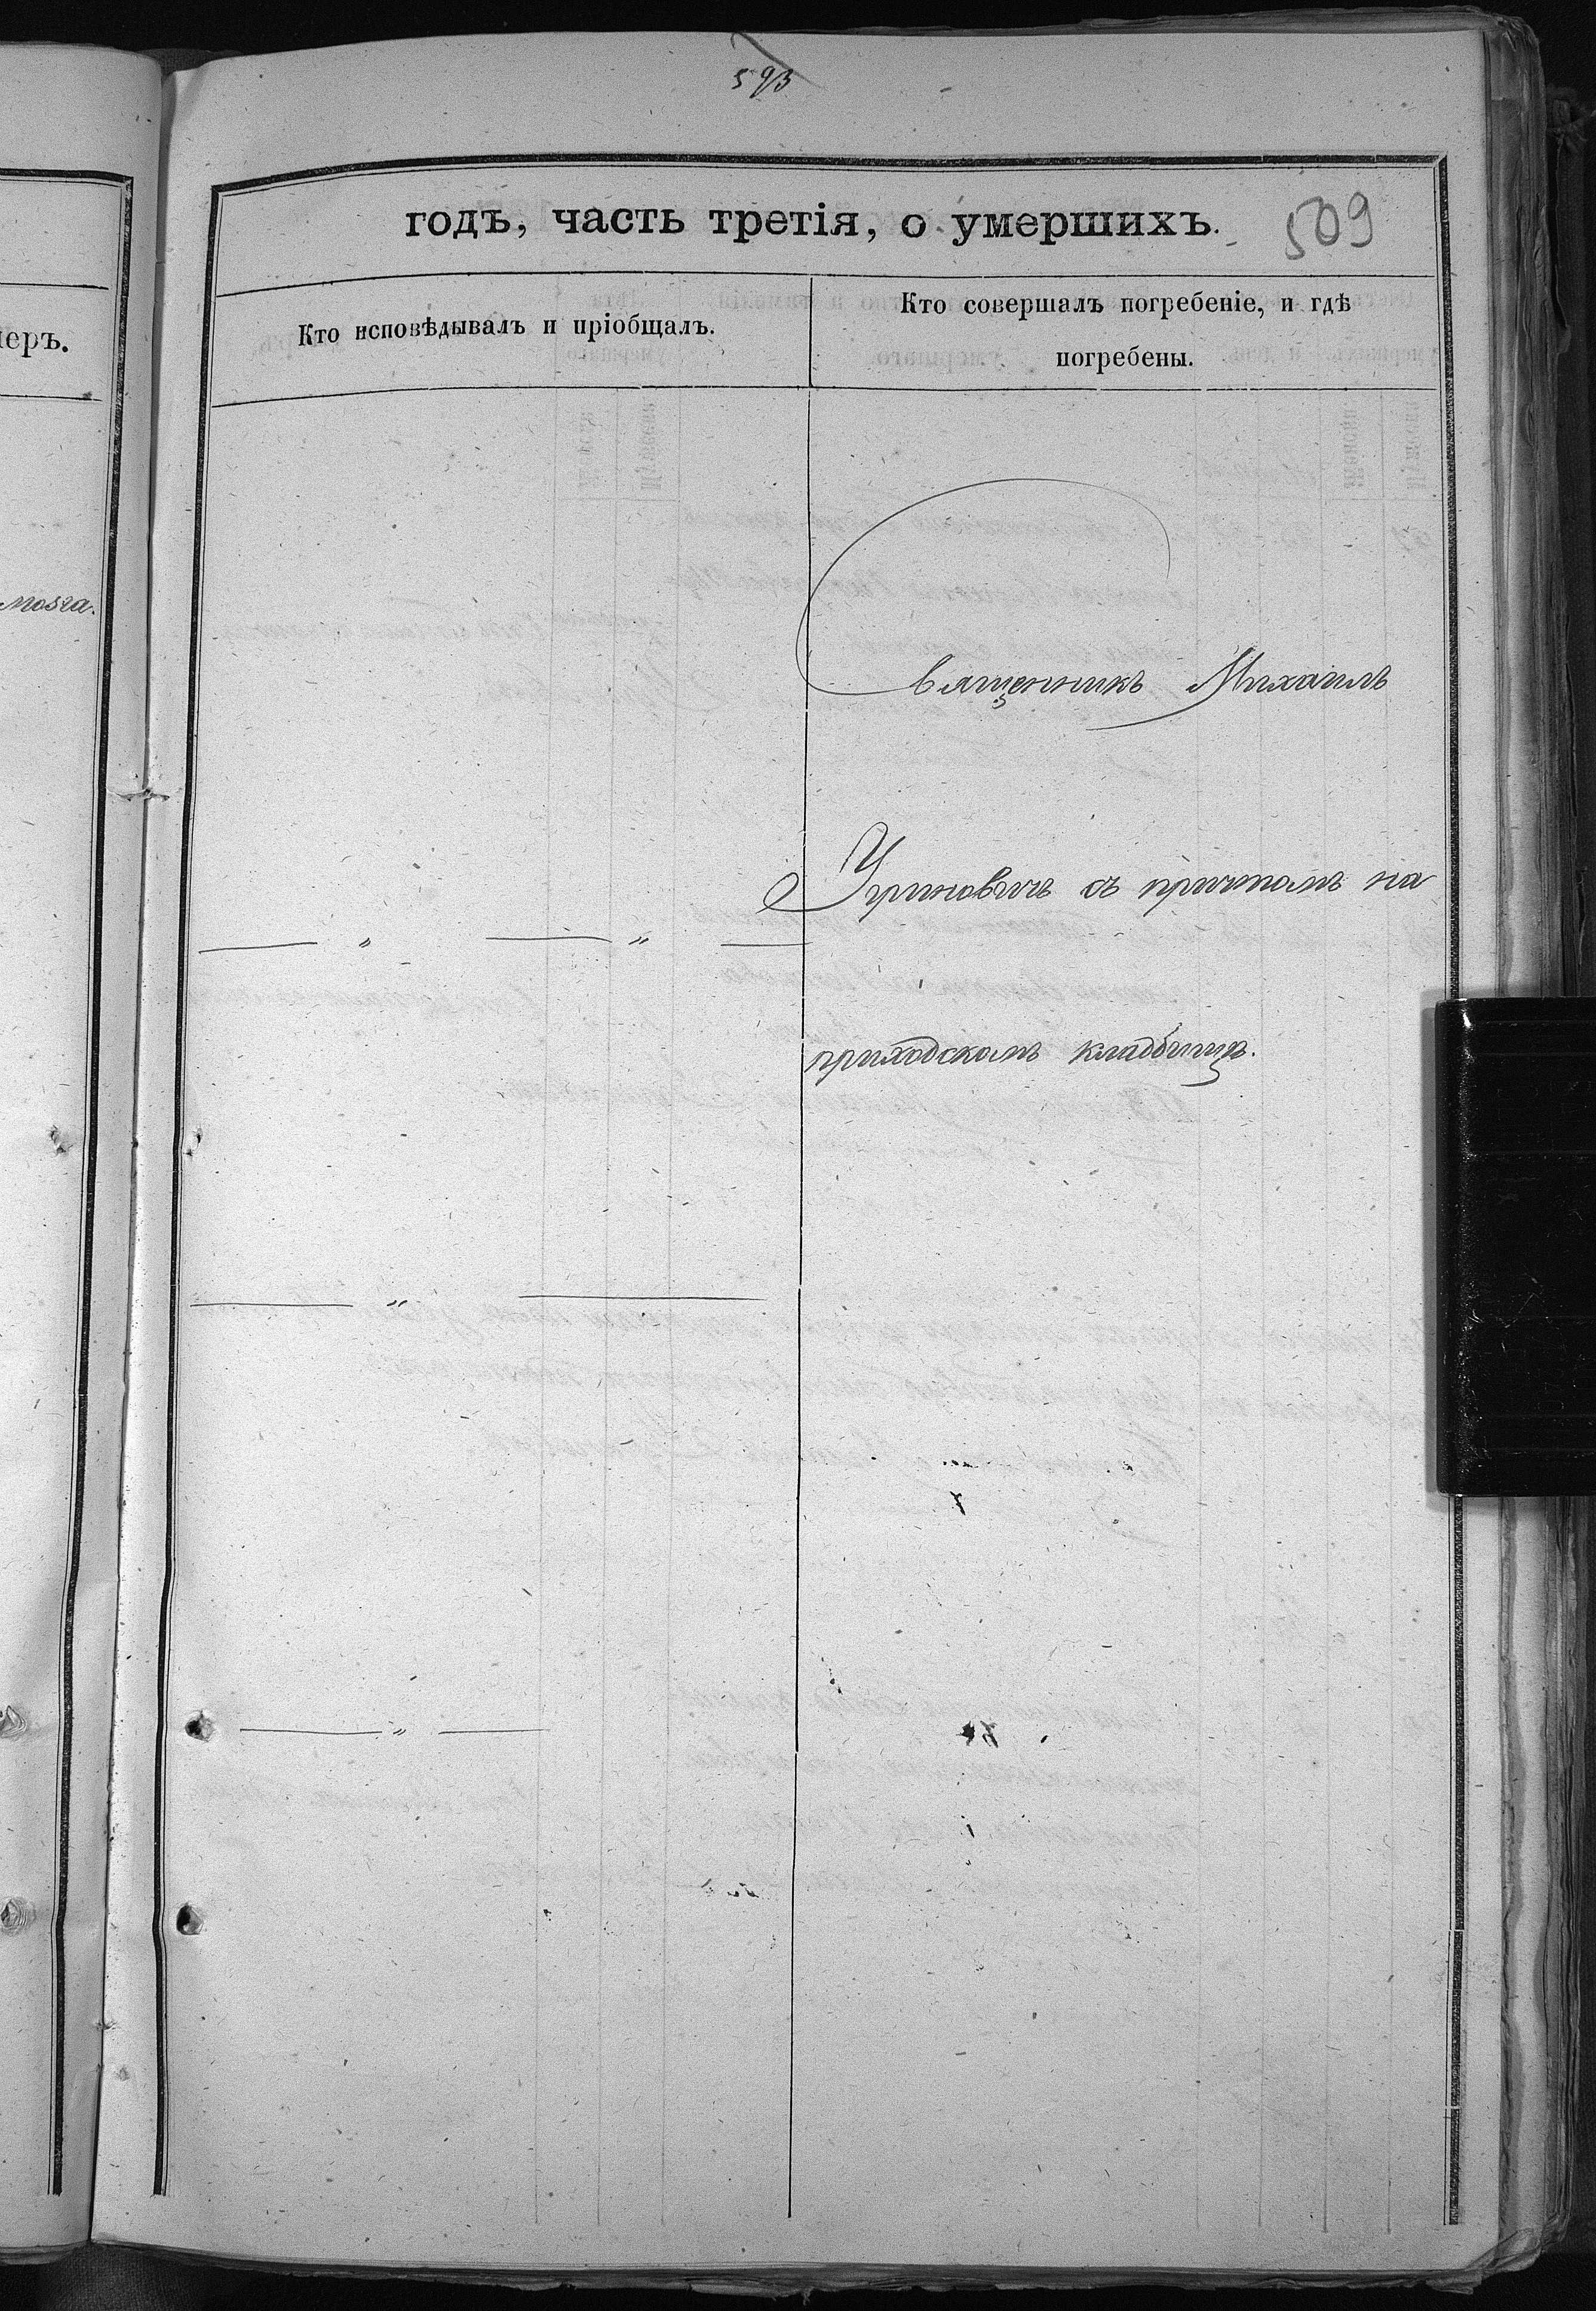 593
годъ, часть третія, о умершихъ.
509
Кто исповѣдывалъ и пріобщалъ.
Кто совершалъ погребеніе, и гдѣ
погребены.
еръ.
мозга.
Священникъ Михаилъ
Гриновичъ съ причтомъ на
— „ — „ —
приходскомъ кладбищѣ.
— „ —
— „ —